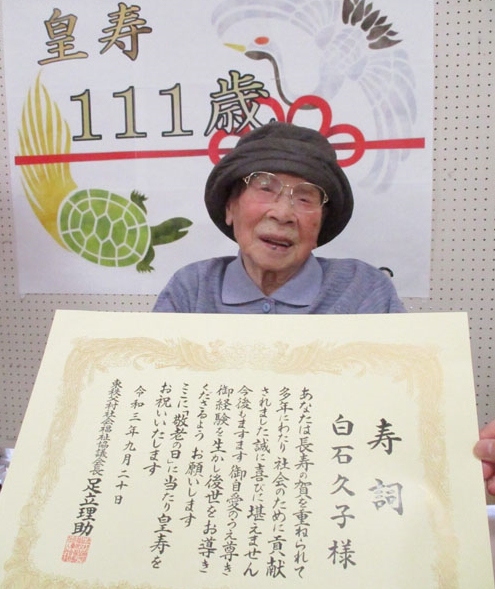 皇寿
111歳
寿詞
白石久子様
あなたは長寿の賀を重ねられて
多年にわたり社会のために貢献
されました誠に喜びに堪えません
今後もますます御自愛のうえ尊き
御経験を生かし後世をお導き
くださるよう お願いします
ここに「敬老の日」に当たり皇寿を
お祝いいたします
令和三年九月二十日
東秩父村社会福祉協議会長 足立理助